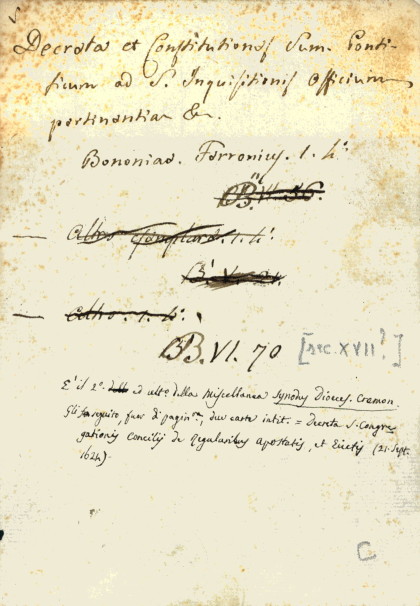 Decreta et Constitutiones Sum. Ponti-
ficum ad S. Inquisitionis Officium
pertinentia &c.
Bononiae. Ferronius. 1. h.
BB. VI. 56.
— altro esemplare. 1. h.
B. V.
— altro. 1. h.
BB. VI. 70 [sec. XVII?]
E' il 2º. ed alt. della Miscellanea Synodus Dioces. Cremon.
Gli fa seguito, fuor di pagin.ne, due carte intit. = Decreta S. Congre-
gationis Concilii de Regularibus Apostatis, et Eiectis (21. Sept.
1624)
C